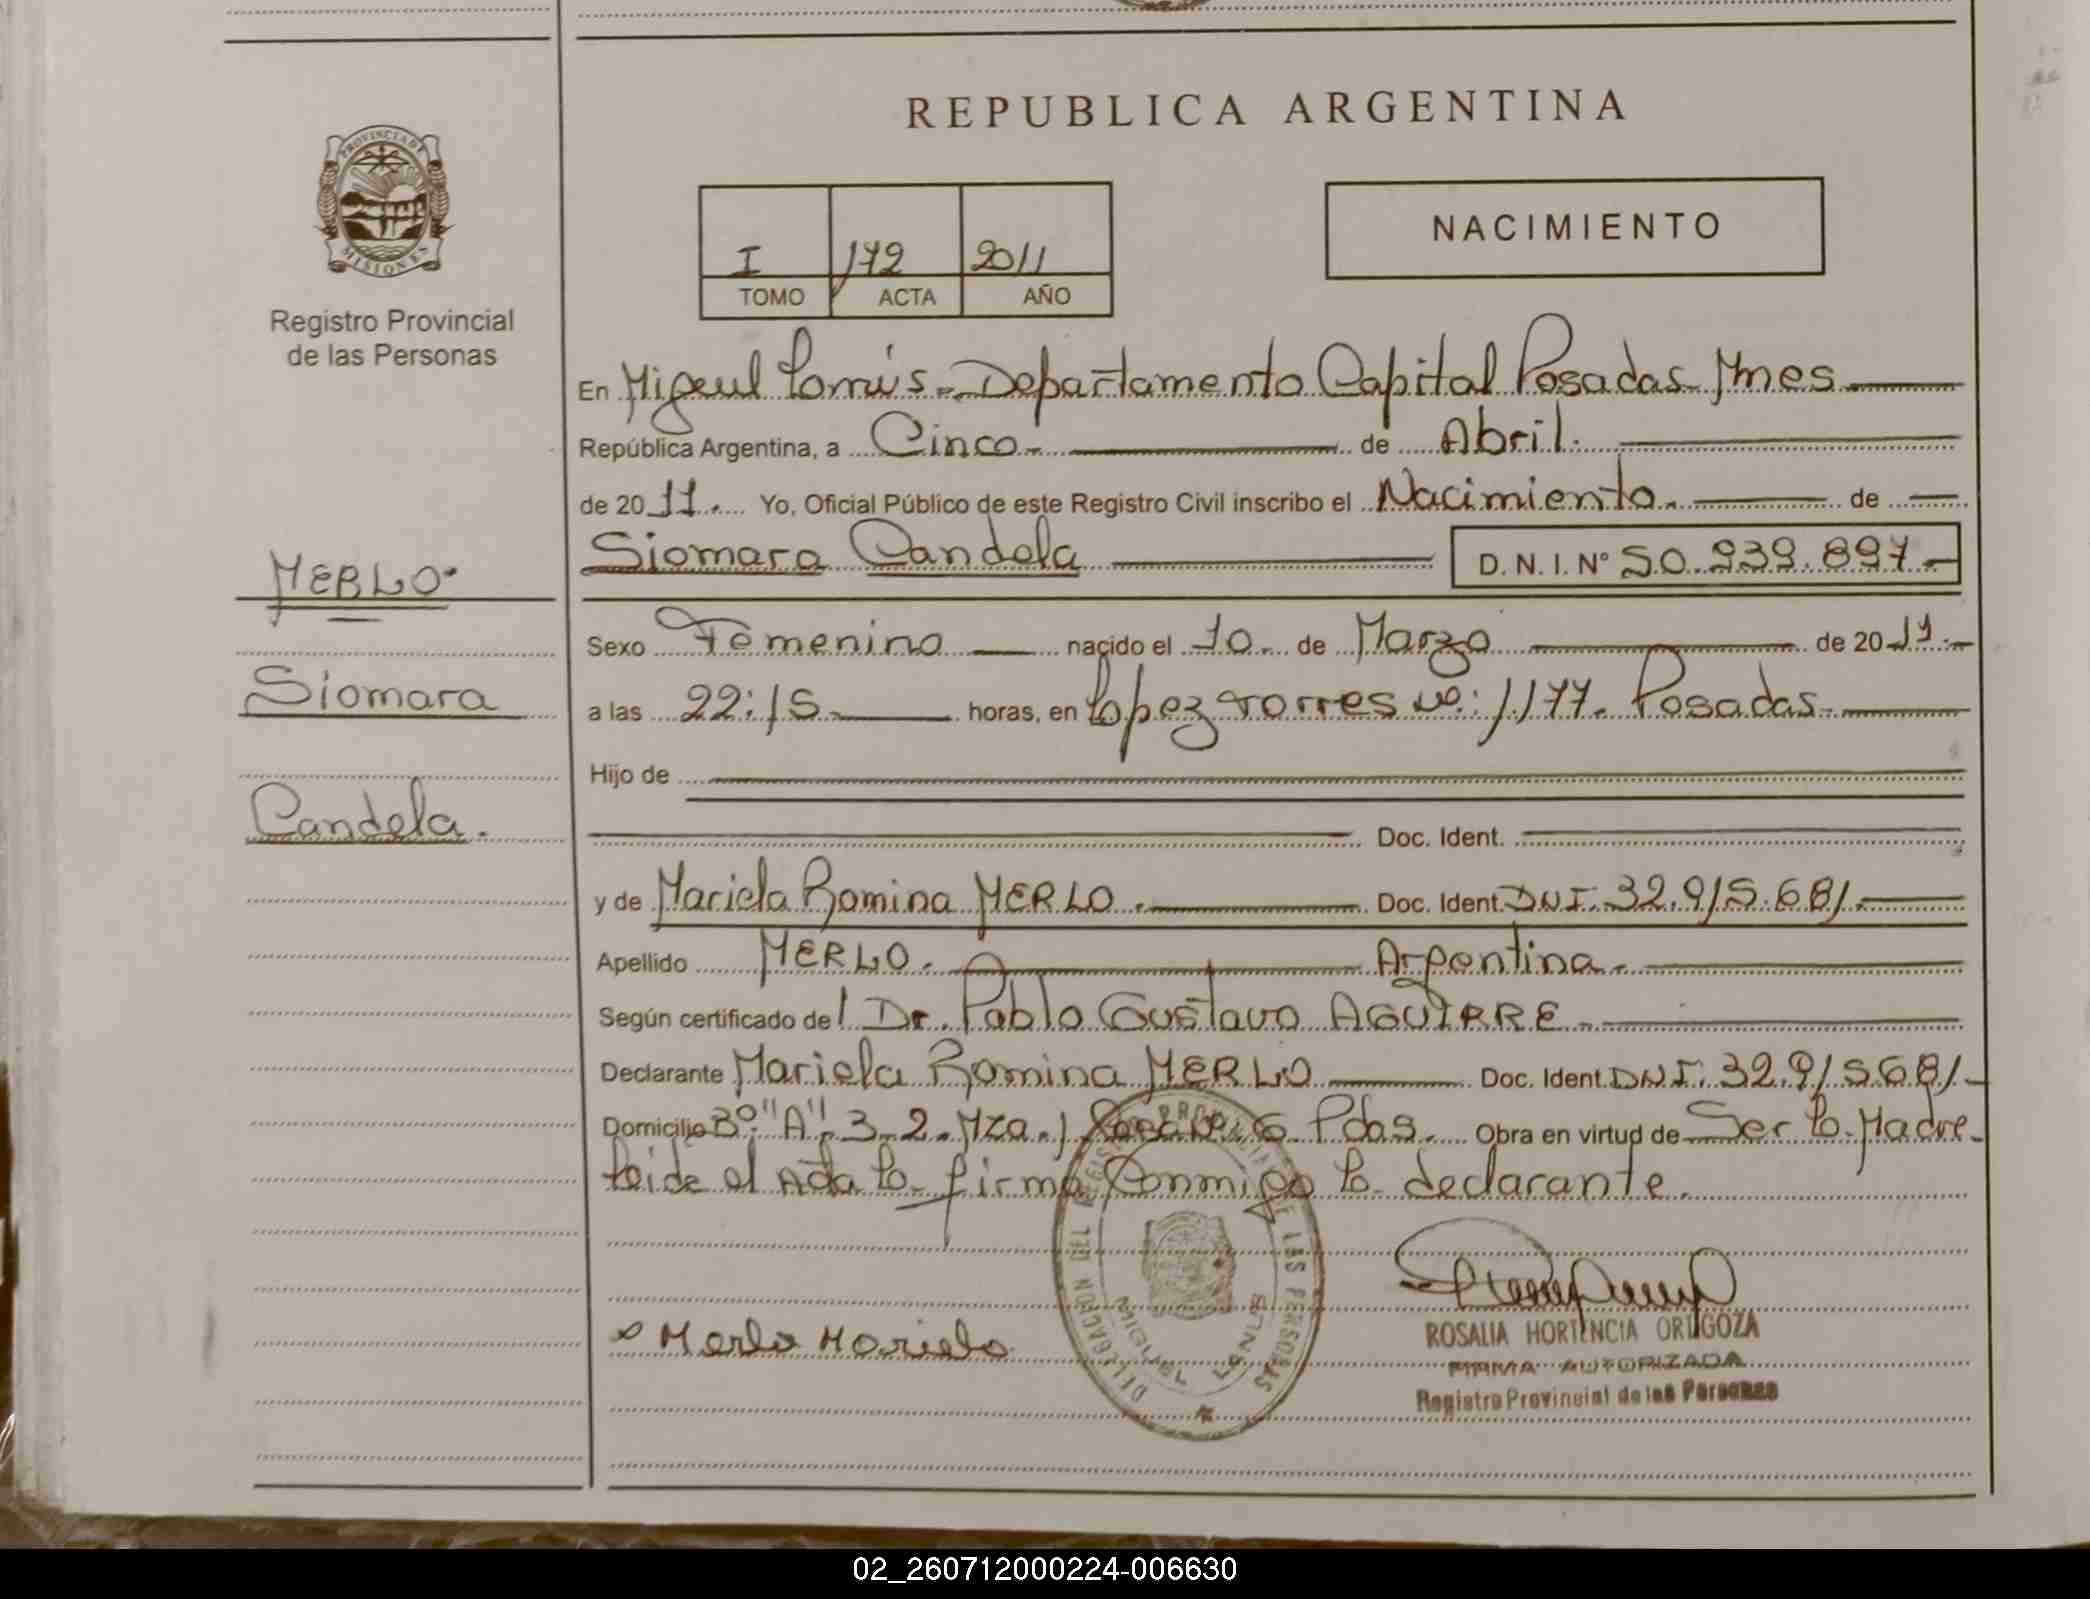 REPUBLICA ARGENTINA
PROVINCIA DE
MISIONES
Registro Provincial
de las Personas
I 172 2011
TOMO ACTA AÑO
NACIMIENTO
En Migeul Lanús - Departamento Capital Posadas Mnes
República Argentina, a Cinco. de Abril.
de 2011. Yo, Oficial Público de este Registro Civil inscribo el Nacimiento. de
Siomara Candela D. N. I. Nº 50.939.897.-
MERLO.
Siomara
Candela.
Sexo Femenino nacido el 10. de Marzo de 2011.-
a las 22:15. horas, en Lopez Torres Nº: 1177. Posadas.
Hijo de
Doc. Ident.
y de Mariela Romina MERLO. Doc. Ident. DNI. 32.915.681.
Apellido MERLO. Argentina.
Según certificado del Dr. Pablo Gustavo AGUIRRE.
Declarante Mariela Romina MERLO Doc. Ident. DNI. 32.915.681.-
Domicilio 3º "A". 3.2. Mza. 1 Pdas. Obra en virtud de Ser la Madre.
leida el Acta la firma Conmigo la declarante.
DELEGACION DEL REGISTRO PROVINCIAL DE LAS PERSONAS
MIGUEL LANUS
Merlo Mariela
ROSALIA HORTENCIA ORTIGOZA
FIRMA AUTORIZADA
Registro Provincial de las Personas
02_260712000224-006630